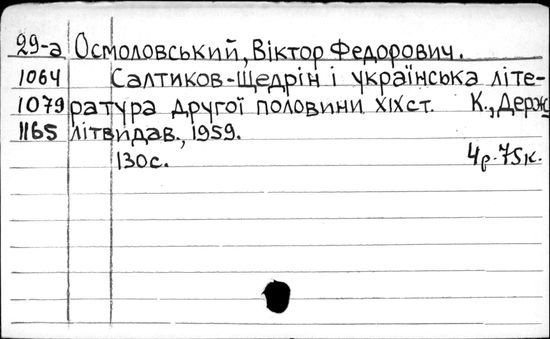 29-а Осмоловський, Віктор Федорович.
1064 Салтиков-Щедрін і українська літе-
1079 ратура другої половини XIXст. К., Держ
1165 літвидав., 1959.
130с. 4р.75к.